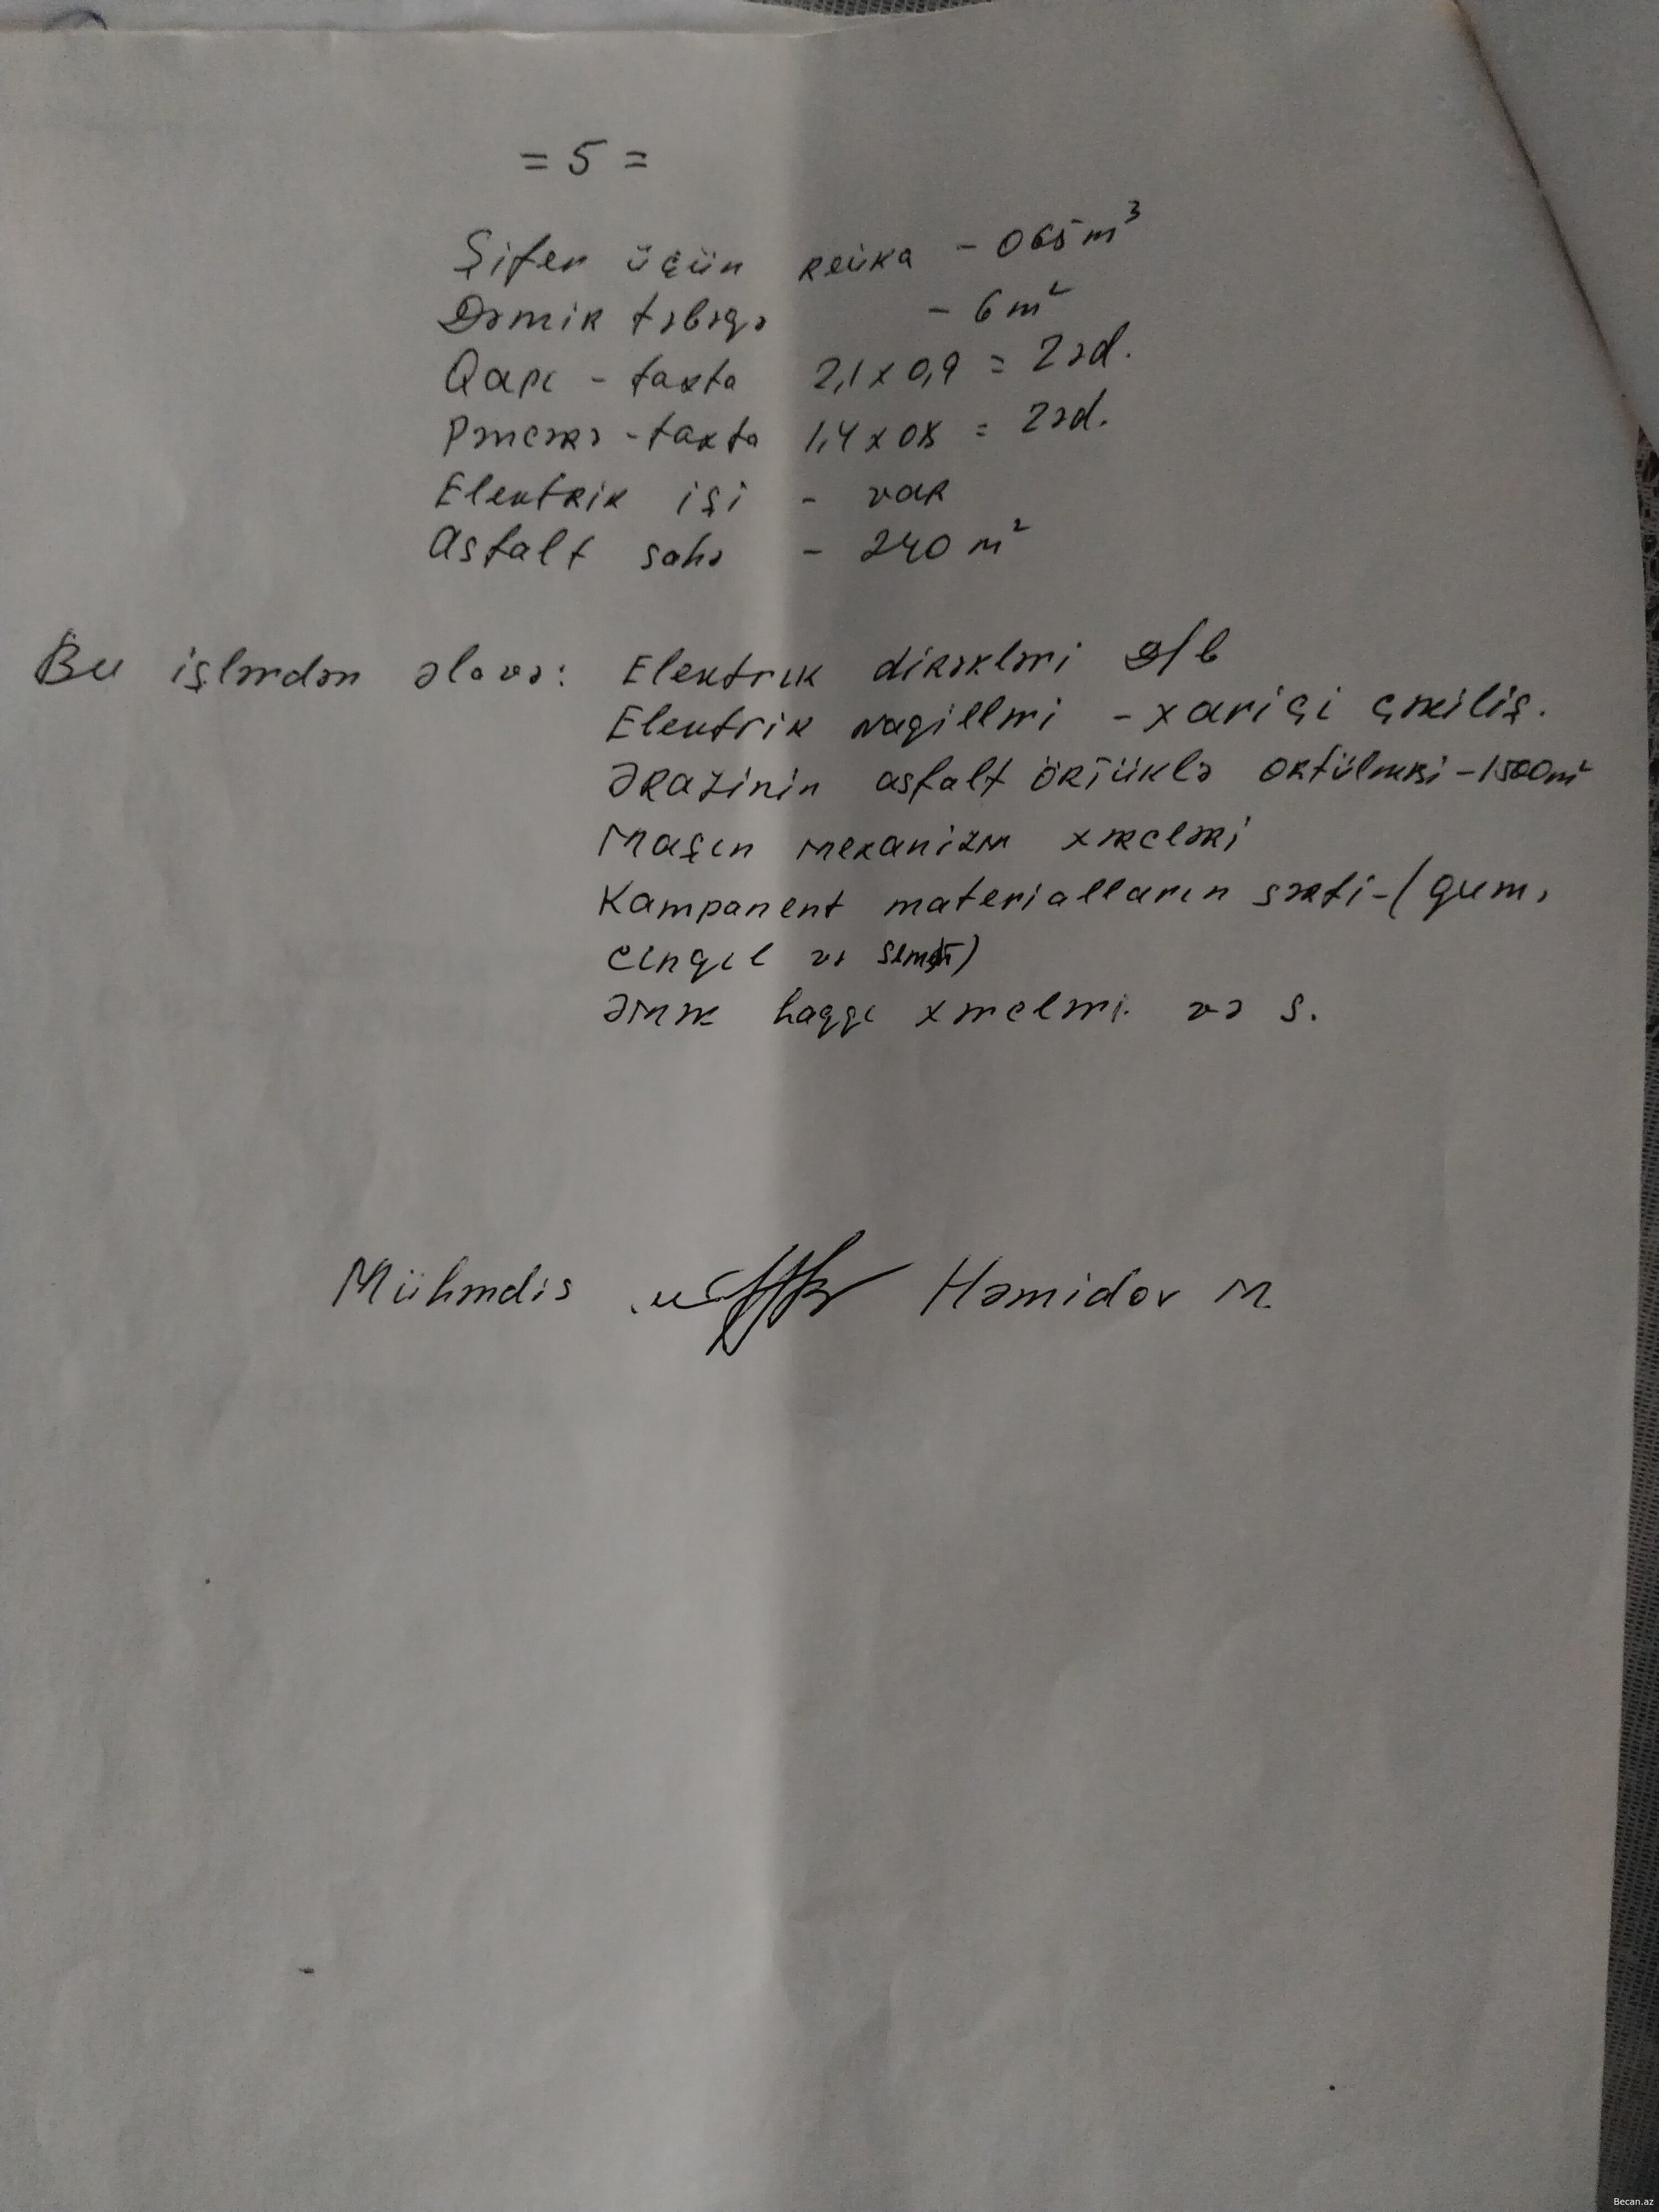 = 5 =
Şifer üçün reika - 065 m³
Dəmir təbəqə - 6 m²
Qapı - taxta 2,1 x 0,9 = 2 əd.
Pəncərə - taxta 1,4 x 08 = 2 əd.
Elektrik işi - var
Asfalt sahə - 240 m²
Bu işlərdən əlavə: Elektrik dirəkləri d/b
Elektrik naqilləri - xarici çəkiliş.
Ərazinin asfalt örtüklə örtülməsi - 1500 m²
Maşın mexanizm xərcləri
Kampanent materialların sərfi - (qum,
çınqıl və sement)
Əmək haqqı xərcləri və s.
Mühəndis Həmidov M.
Becan.az